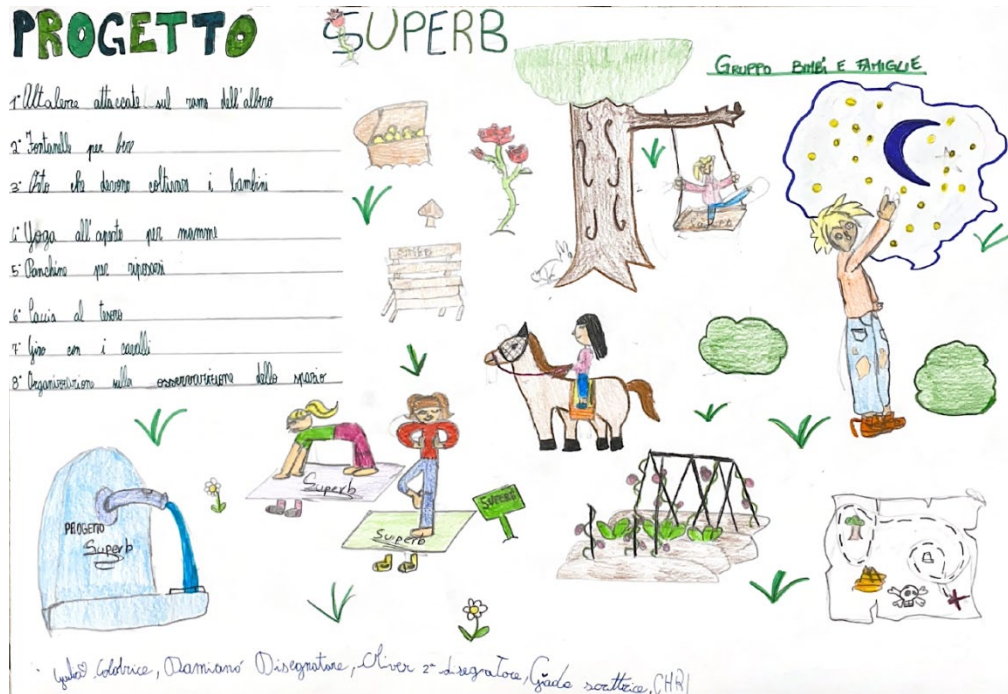 PROGETTO SUPERB
GRUPPO BIMBI E FAMIGLIE
1° Altalene attaccate sul ramo dell'albero
2° Fontanelle per bere
3° Orto che devono coltivare i bambini
4° Yoga all'aperto per mamme
5° Panchine per riposarsi
6° Caccia al tesoro
7° Giro con i cavalli
8° Organizzazione sulla osservazione dello spazio
SUPERB
Superb
Superb
SUPERB
PROGETTO
Superb
Colatrice, Damiano Disegnatore, Oliver 2° disegratore, Giada scrittrice, CHRI